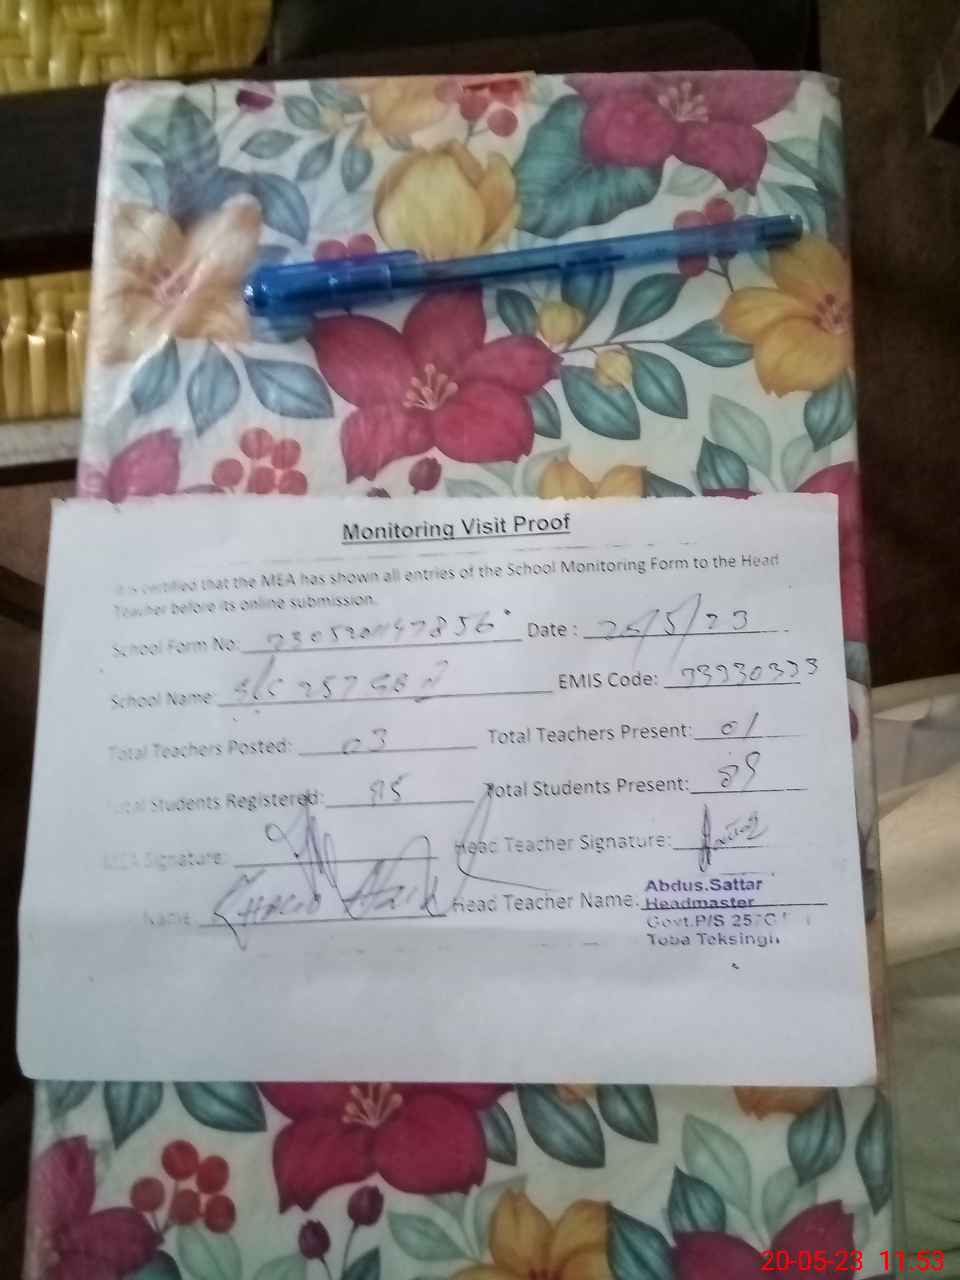 Monitoring Visit Proof
It is certified that the MEA has shown all entries of the School Monitoring Form to the Head
Teacher before its online submission.
School Form No: Date :
School Name: EMIS Code: 93930333
Total Teachers Posted: 03 Total Teachers Present: 01
Total Students Registered: 95 Total Students Present: 89
MEA Signature: Head Teacher Signature:
Name: Head Teacher Name: Abdus.Sattar
Headmaster
Govt.P/S 257G
Toba Teksingh
20-05-23 11:53